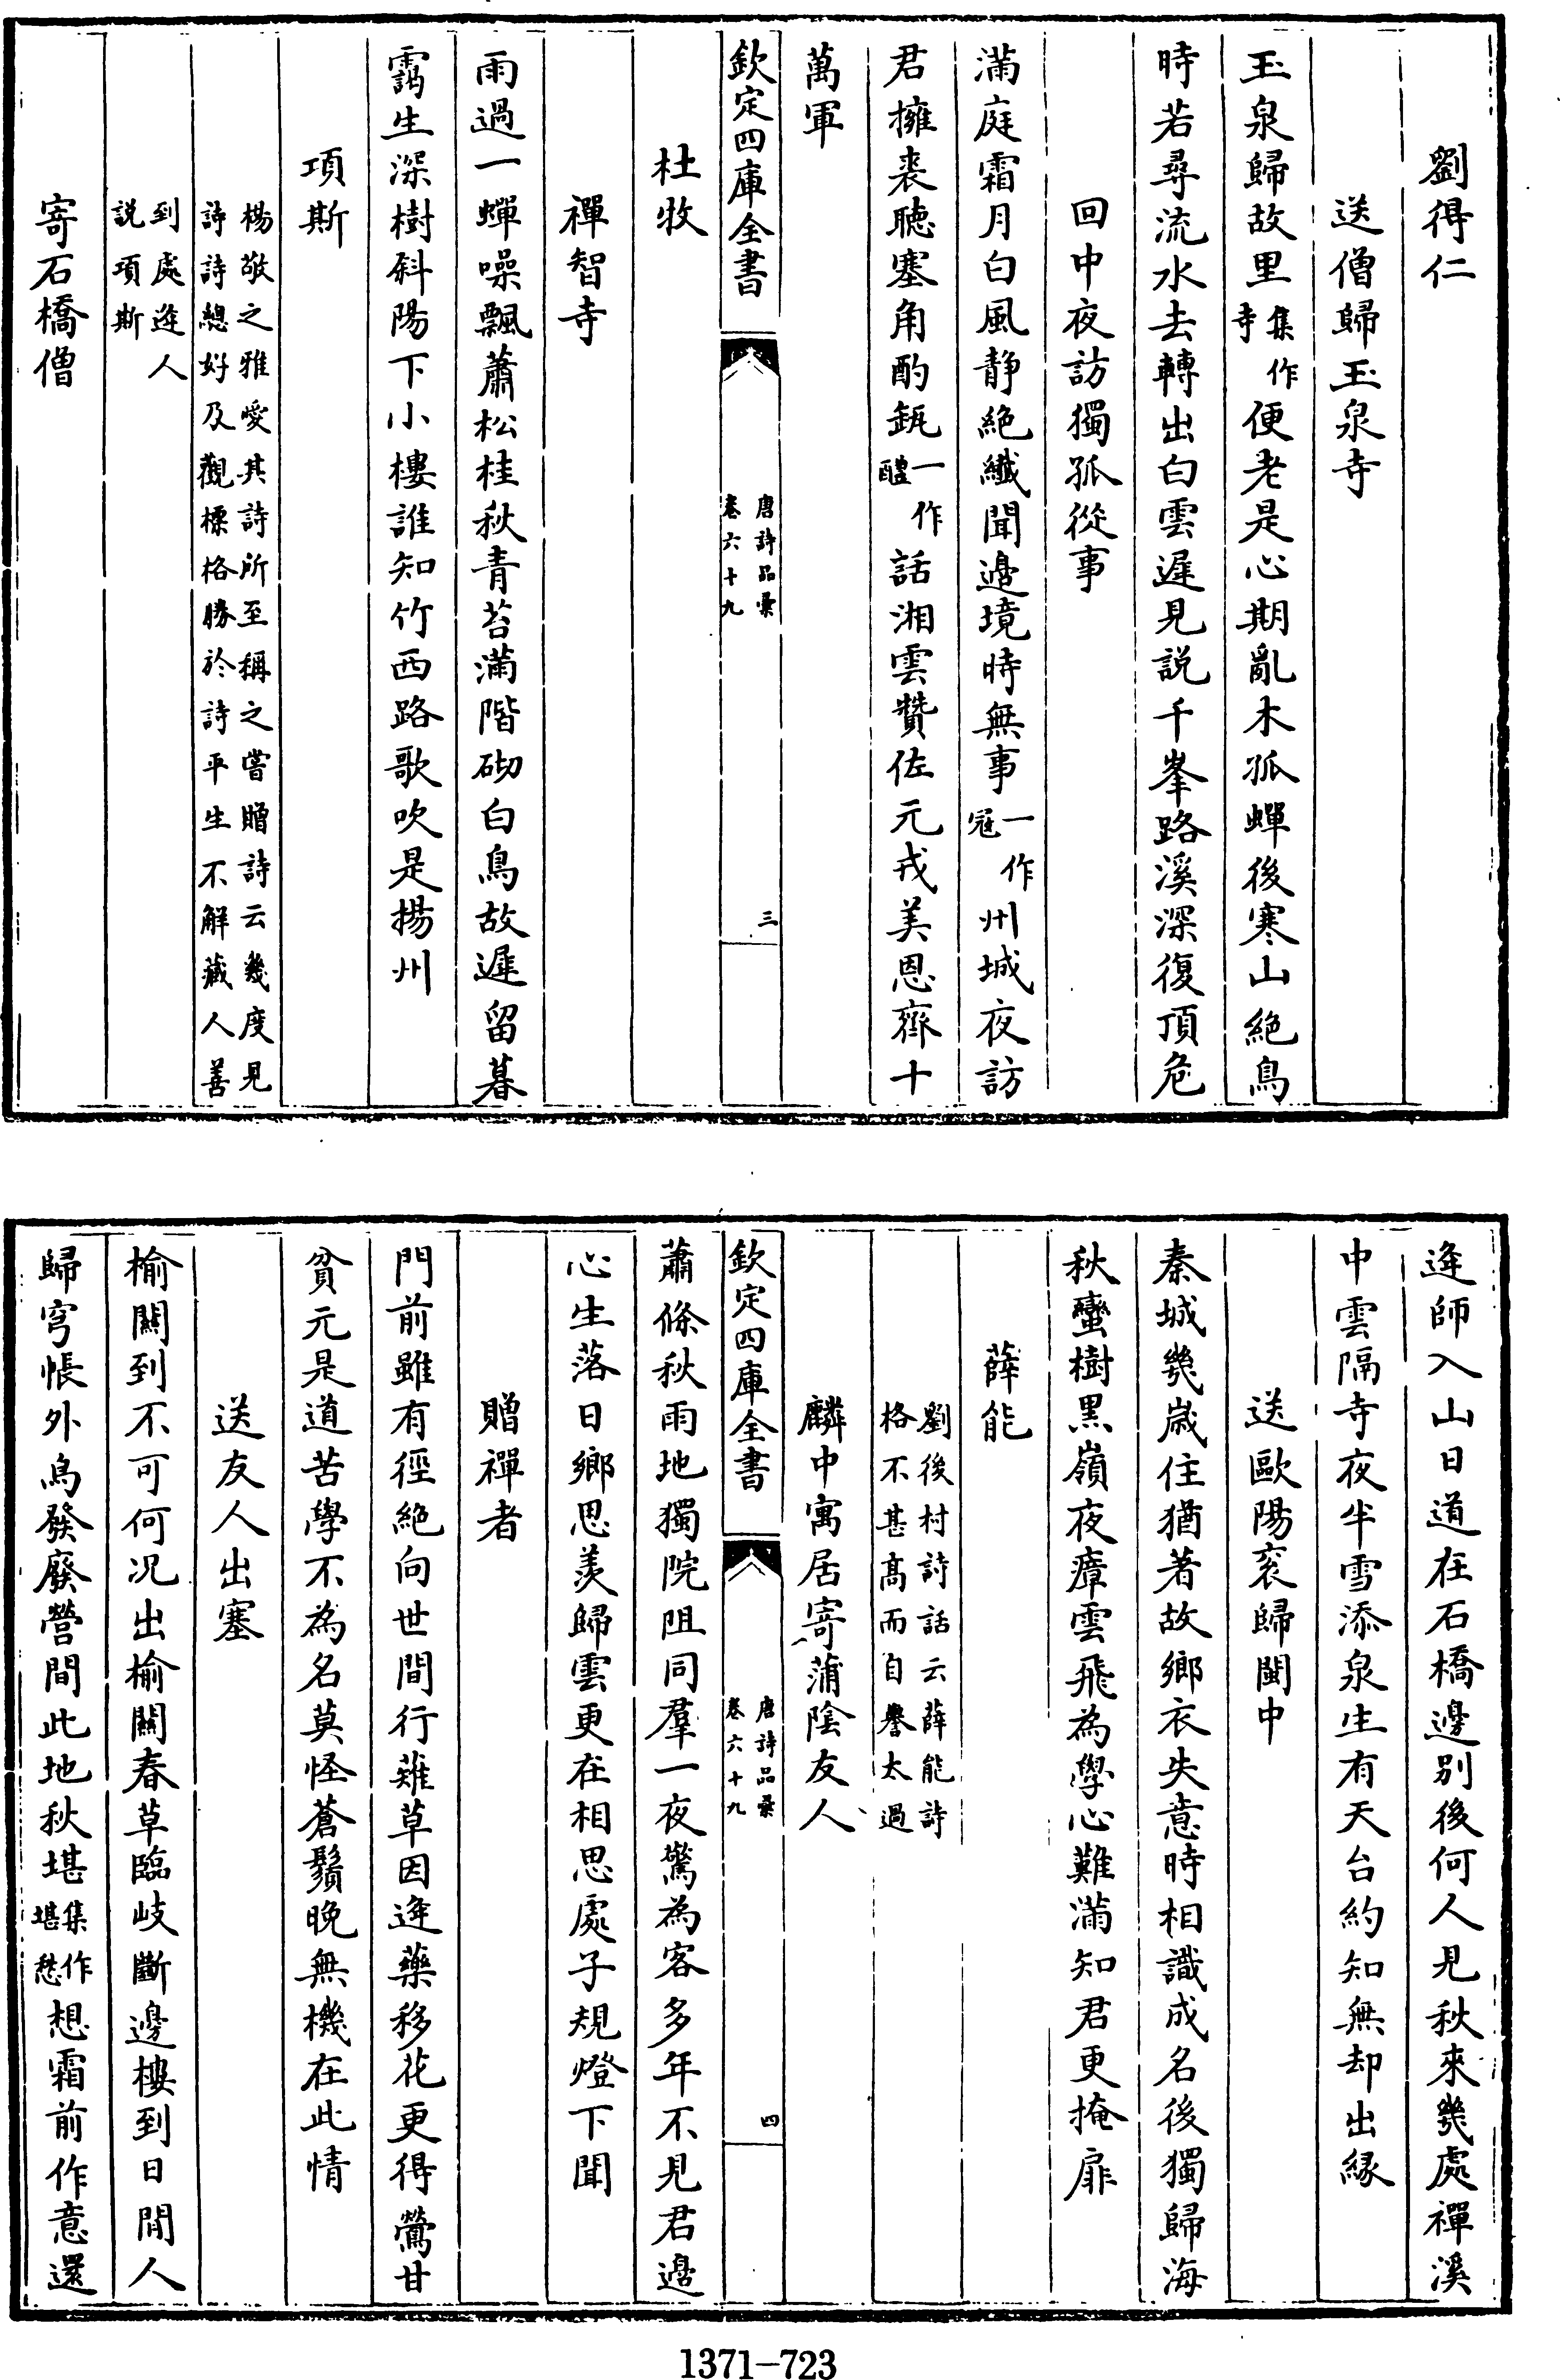 劉得仁
送僧歸玉泉寺
玉泉歸故里集作寺便老是心期亂木孤蟬後寒山絶鳥
時若尋流水去轉出白雲遲見説千峯路溪深復頂危
回中夜訪獨孤從事
滿庭霜月白風静絶纎聞邉境時無事一作冦州城夜訪
君擁裘聽塞角酌瓻一作醴話湘雲贊佐元戎美恩齊十
萬軍
欽定四庫全書
唐詩品彚
卷六十九
三
杜牧
禪智寺
雨過一蟬噪飄蕭松桂秋青苔滿階砌白鳥故遲留暮
靄生深樹斜陽下小樓誰知竹西路歌吹是揚州
項斯
楊敬之雅愛其詩所至稱之嘗贈詩云幾度見
詩詩總好及觀標格勝於詩平生不解藏人善
到處逄人
説項斯
寄石橋僧
逄師入山日道在石橋邊别後何人見秋來幾處禪溪
中雲隔寺夜半雪添泉生有天台約知無却出縁
送歐陽衮歸閩中
秦城幾歳住猶著故鄉衣失意時相識成名後獨歸海
秋蠻樹黒嶺夜瘴雲飛為學心難滿知君更掩扉
薛能
劉後村詩話云薛能詩
格不甚髙而自譽太過
麟中寓居寄蒲陰友人
欽定四庫全書
唐詩品彚
卷六十九
四
蕭條秋雨地獨院阻同羣一夜驚為客多年不見君邉
心生落日鄉思羨歸雲更在相思處子規燈下聞
贈禪者
門前雖有徑絶向世間行薙草因逄藥移花更得鶯甘
貧元是道苦學不為名莫怪蒼鬚晚無機在此情
送友人出塞
榆闗到不可何况出榆闗春草臨岐斷邊樓到日閒人
歸穹帳外鳥發廢營間此地秋堪集作堪愁想霜前作意還
1371-723